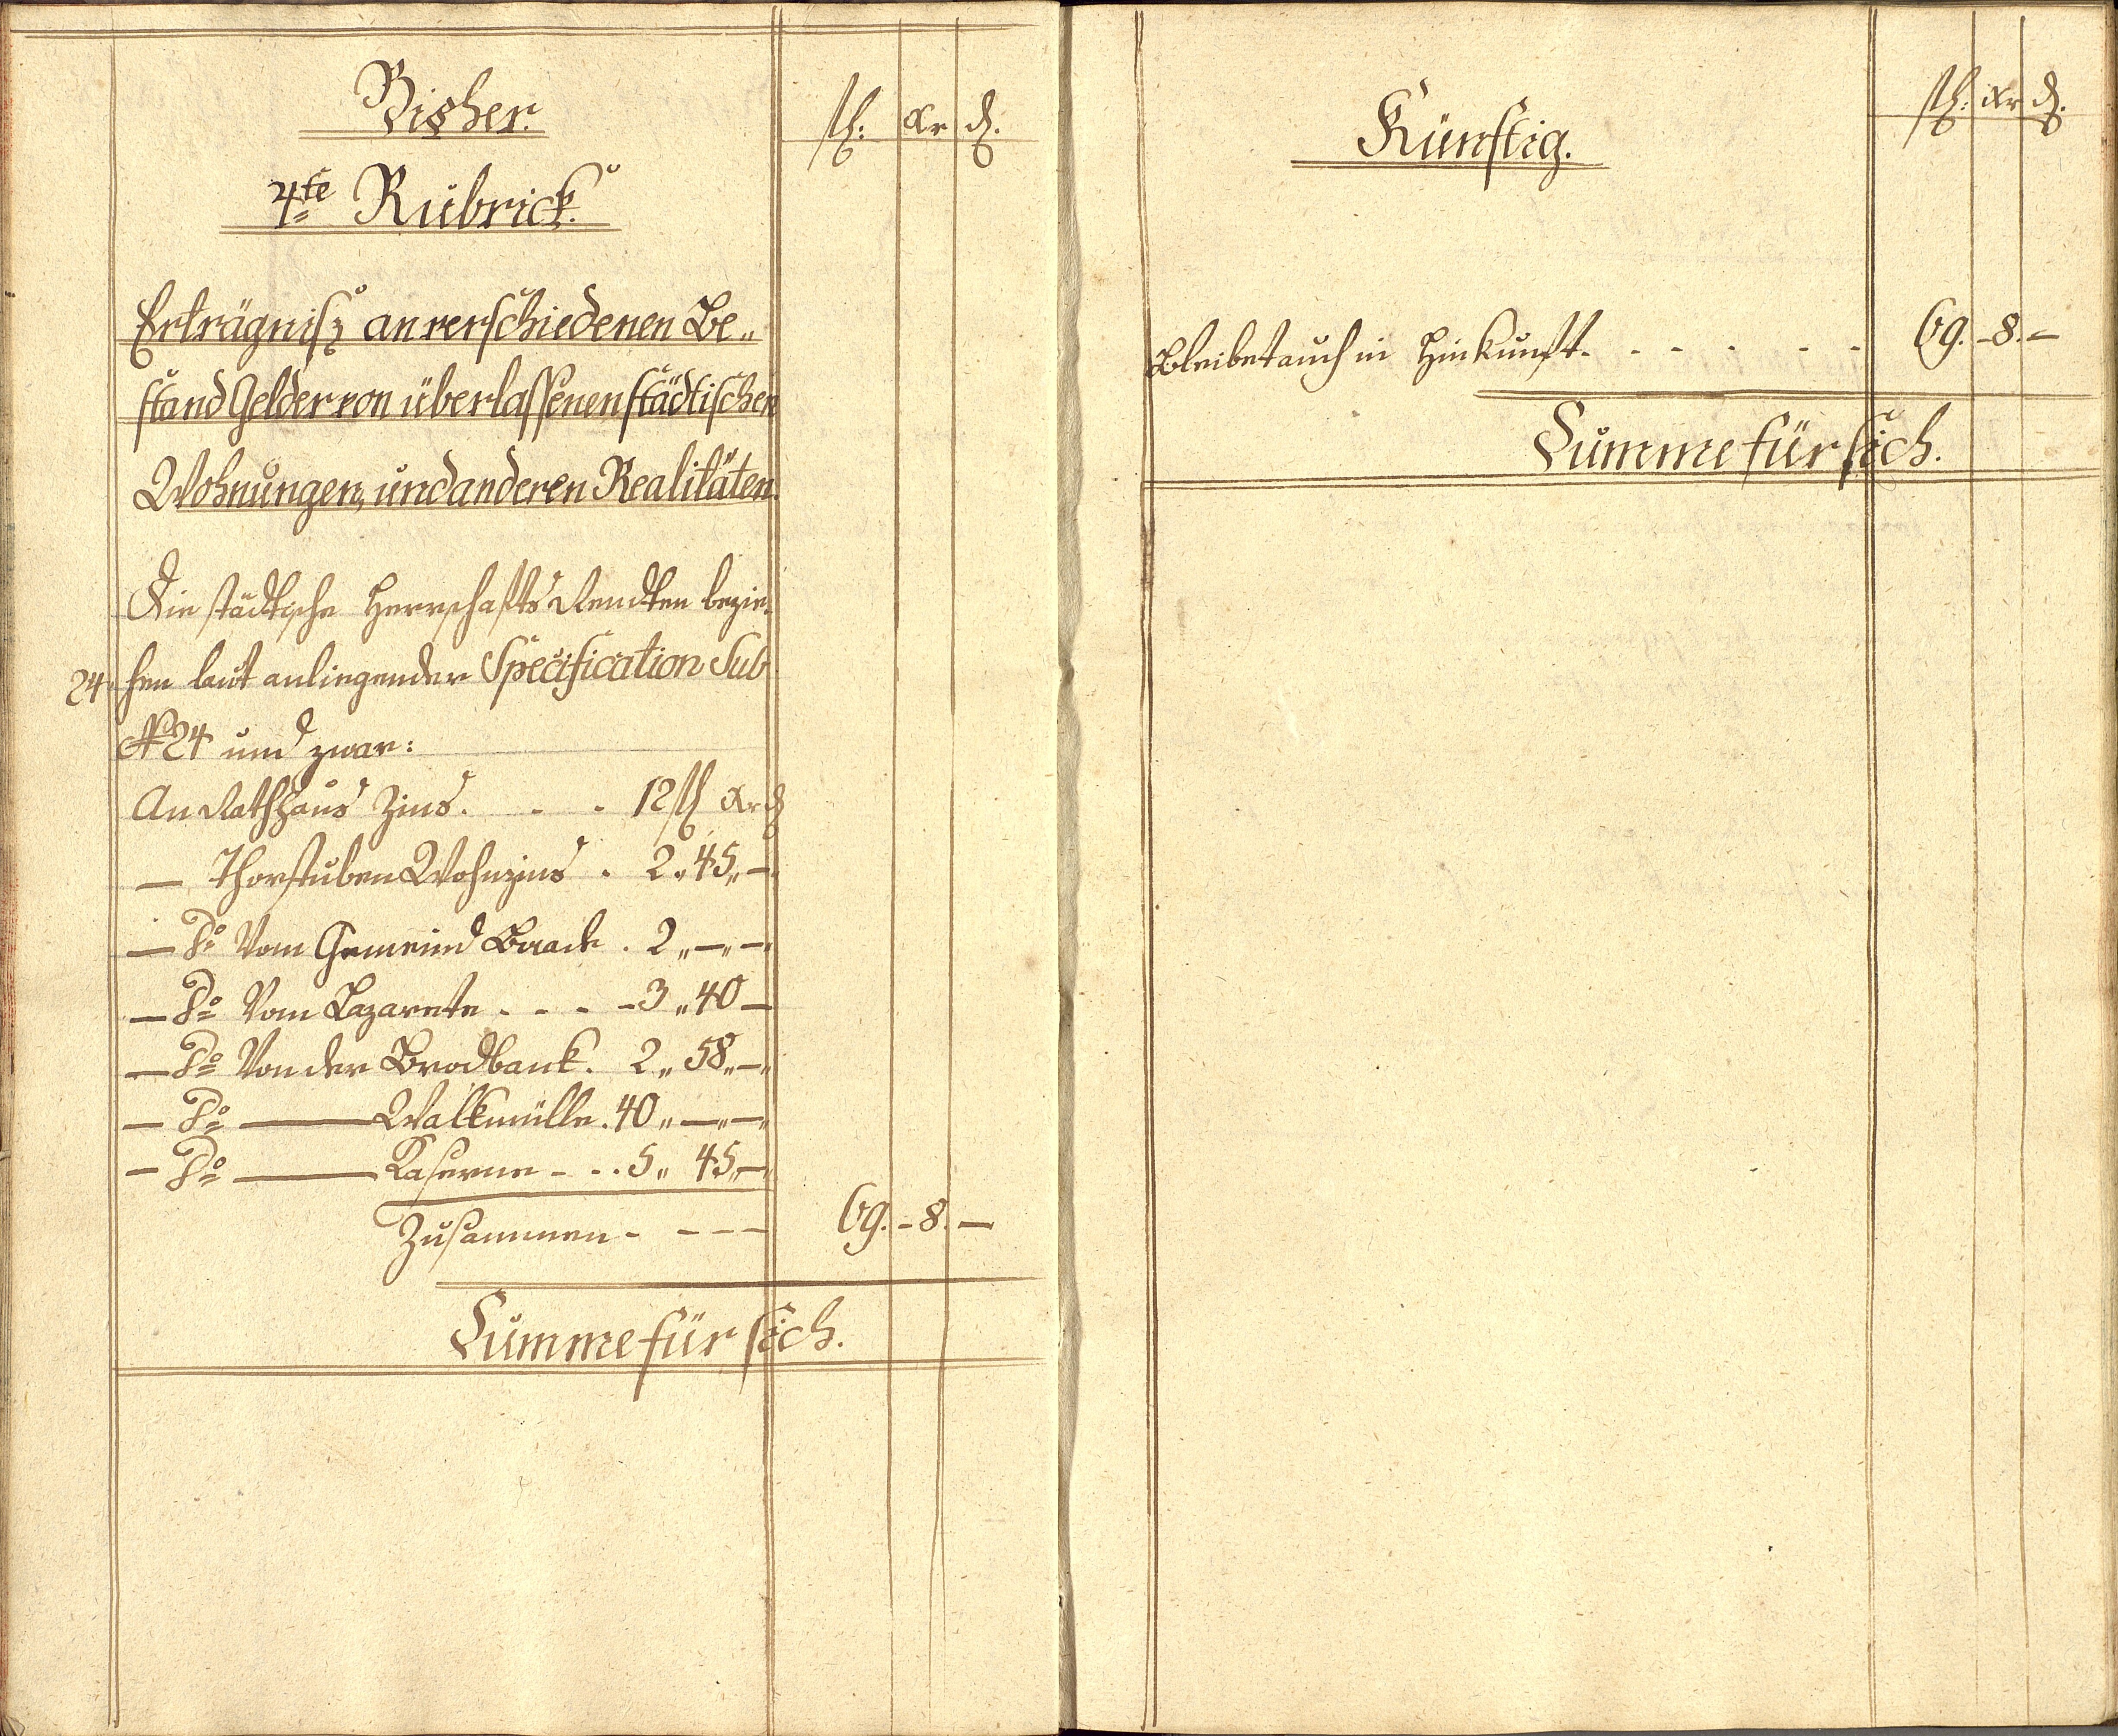 Bisher.
fl: Xr d.
4te Rubrick.
Erträgnisz an verschiedenen Be„
stand Gelder von überlassenen städtischen
Wohnungen, und anderen Realitäten.
Die städtische Herrschafts Rendten bezie„
24. hen laut anliegender Specification Sub
N 24 und zwar:
An Rathhaus Zins. - - 12 fl Xr d
— Thorstuben Wohnzins . 2„ 45„ —
— do Vom Gemeind . 2„ —„ —„
— do Vom Lazarete - - - - 3„ 40 —
— do Von der Brodbank. 2„ 58„ —„
— do — Walkmülle. 40„ —„ —„
— do — Kaserne - - . 5„ 45„ —„
Zusammen - - - - 69. - 8. —
Summe für sich.
Künftig.
fl: Xr d.
Bleibet auch in Hinkunft. - - - - - - 69. - 8. —
Summe für sich.